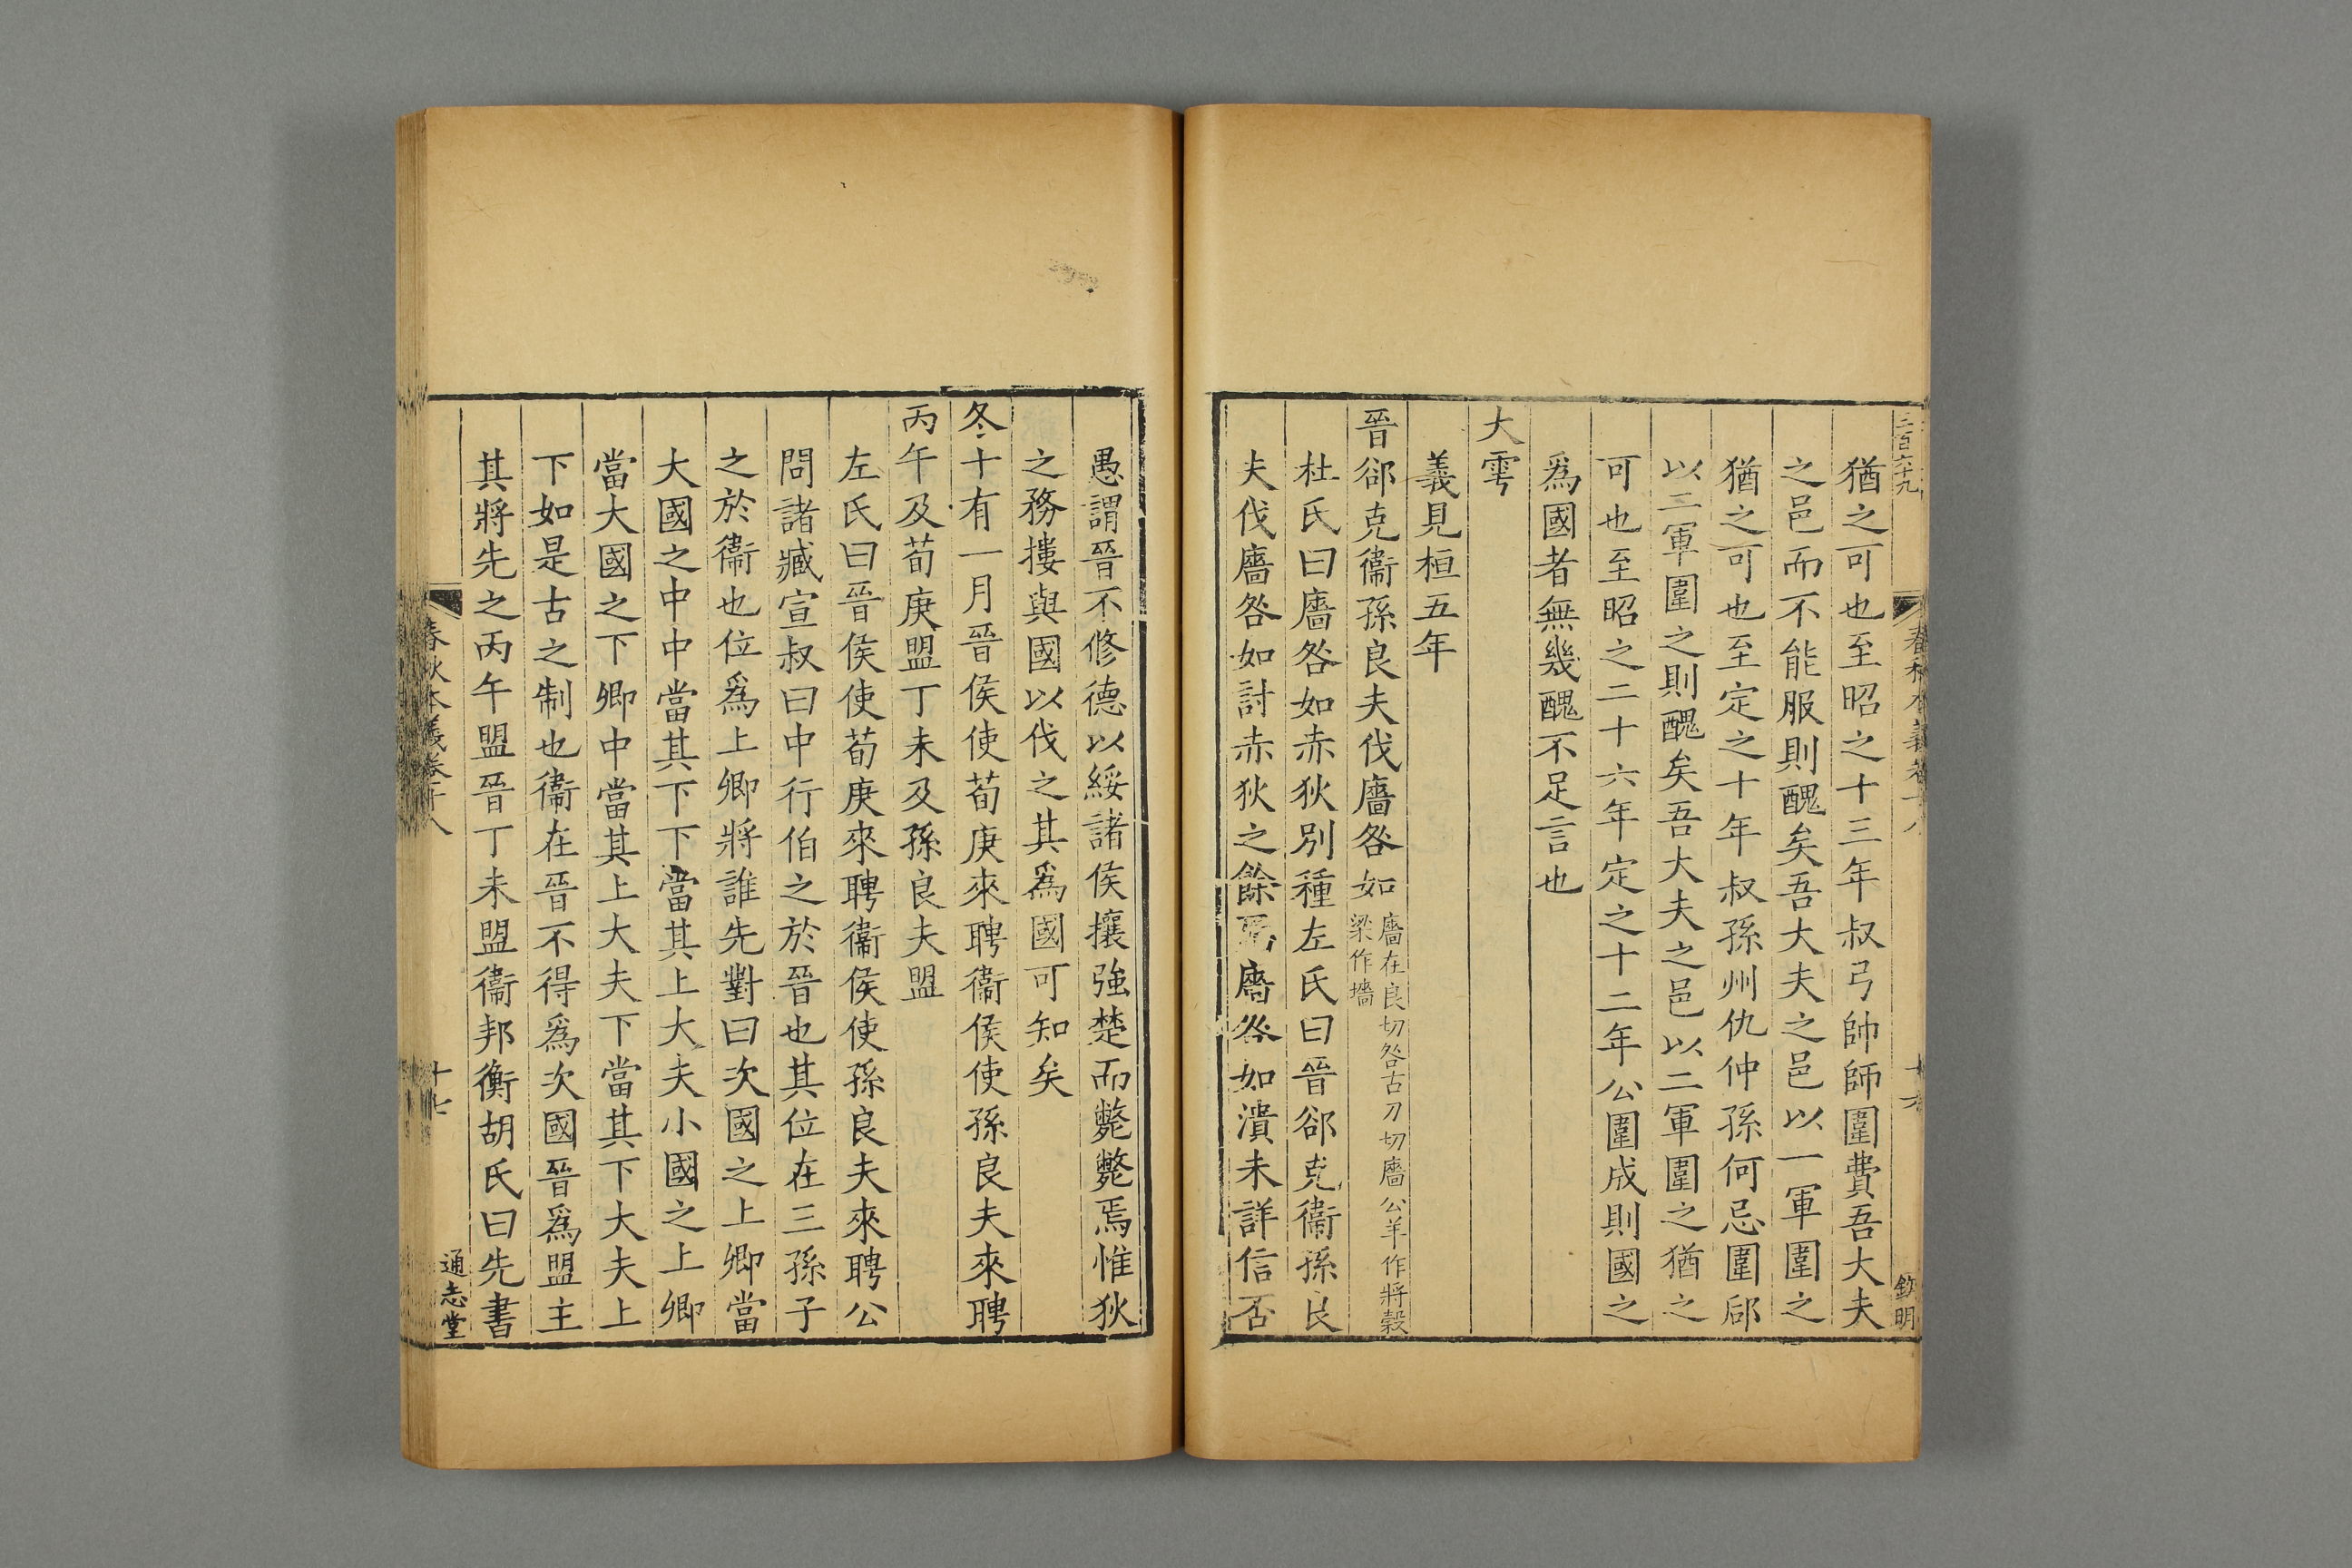 三百六十九
春秋本義卷十八
十六
欽明
猶之可也至昭之十三年叔弓帥師圍費吾大夫
之邑而不能服則醜矣吾大夫之邑以一軍圍之
猶之可也至定之十年叔孫州仇仲孫何忌圍郈
以二軍圍之則醜矣吾大夫之邑以二軍圍之猶之
可也至昭之二十六年定之十二年公圍成則國之
爲國者無幾醜不足言也
大雩
義見桓五年
晉郤克衞孫良夫伐廧咎如廧在良切咎古刀切廧公羊作將穀
梁作墻
杜氏曰廧咎如赤狄別種左氏曰晉郤克衞孫良
夫伐廧咎如討赤狄之餘焉廧咎如潰未詳信否
愚謂晉不修德以綏諸侯攘強楚而斃斃焉惟狄
之務摟與國以伐之其爲國可知矣
冬十有一月晉侯使荀庚來聘衞侯使孫良夫來聘
丙午及荀庚盟丁未及孫良夫盟
左氏曰晉侯使荀庚來聘衞侯使孫良夫來聘公
問諸臧宣叔曰中行伯之於晉也其位在三孫子
之於衞也位爲上卿將誰先對曰次國之上卿當
大國之中中當其下下當其上大夫小國之上卿
當大國之下卿中當其上大夫下當其下大夫上
下如是古之制也衞在晉不得爲次國晉爲盟主
其將先之丙午盟晉丁未盟衞邦衡胡氏曰先書
春秋本義卷十八
十七
通志堂